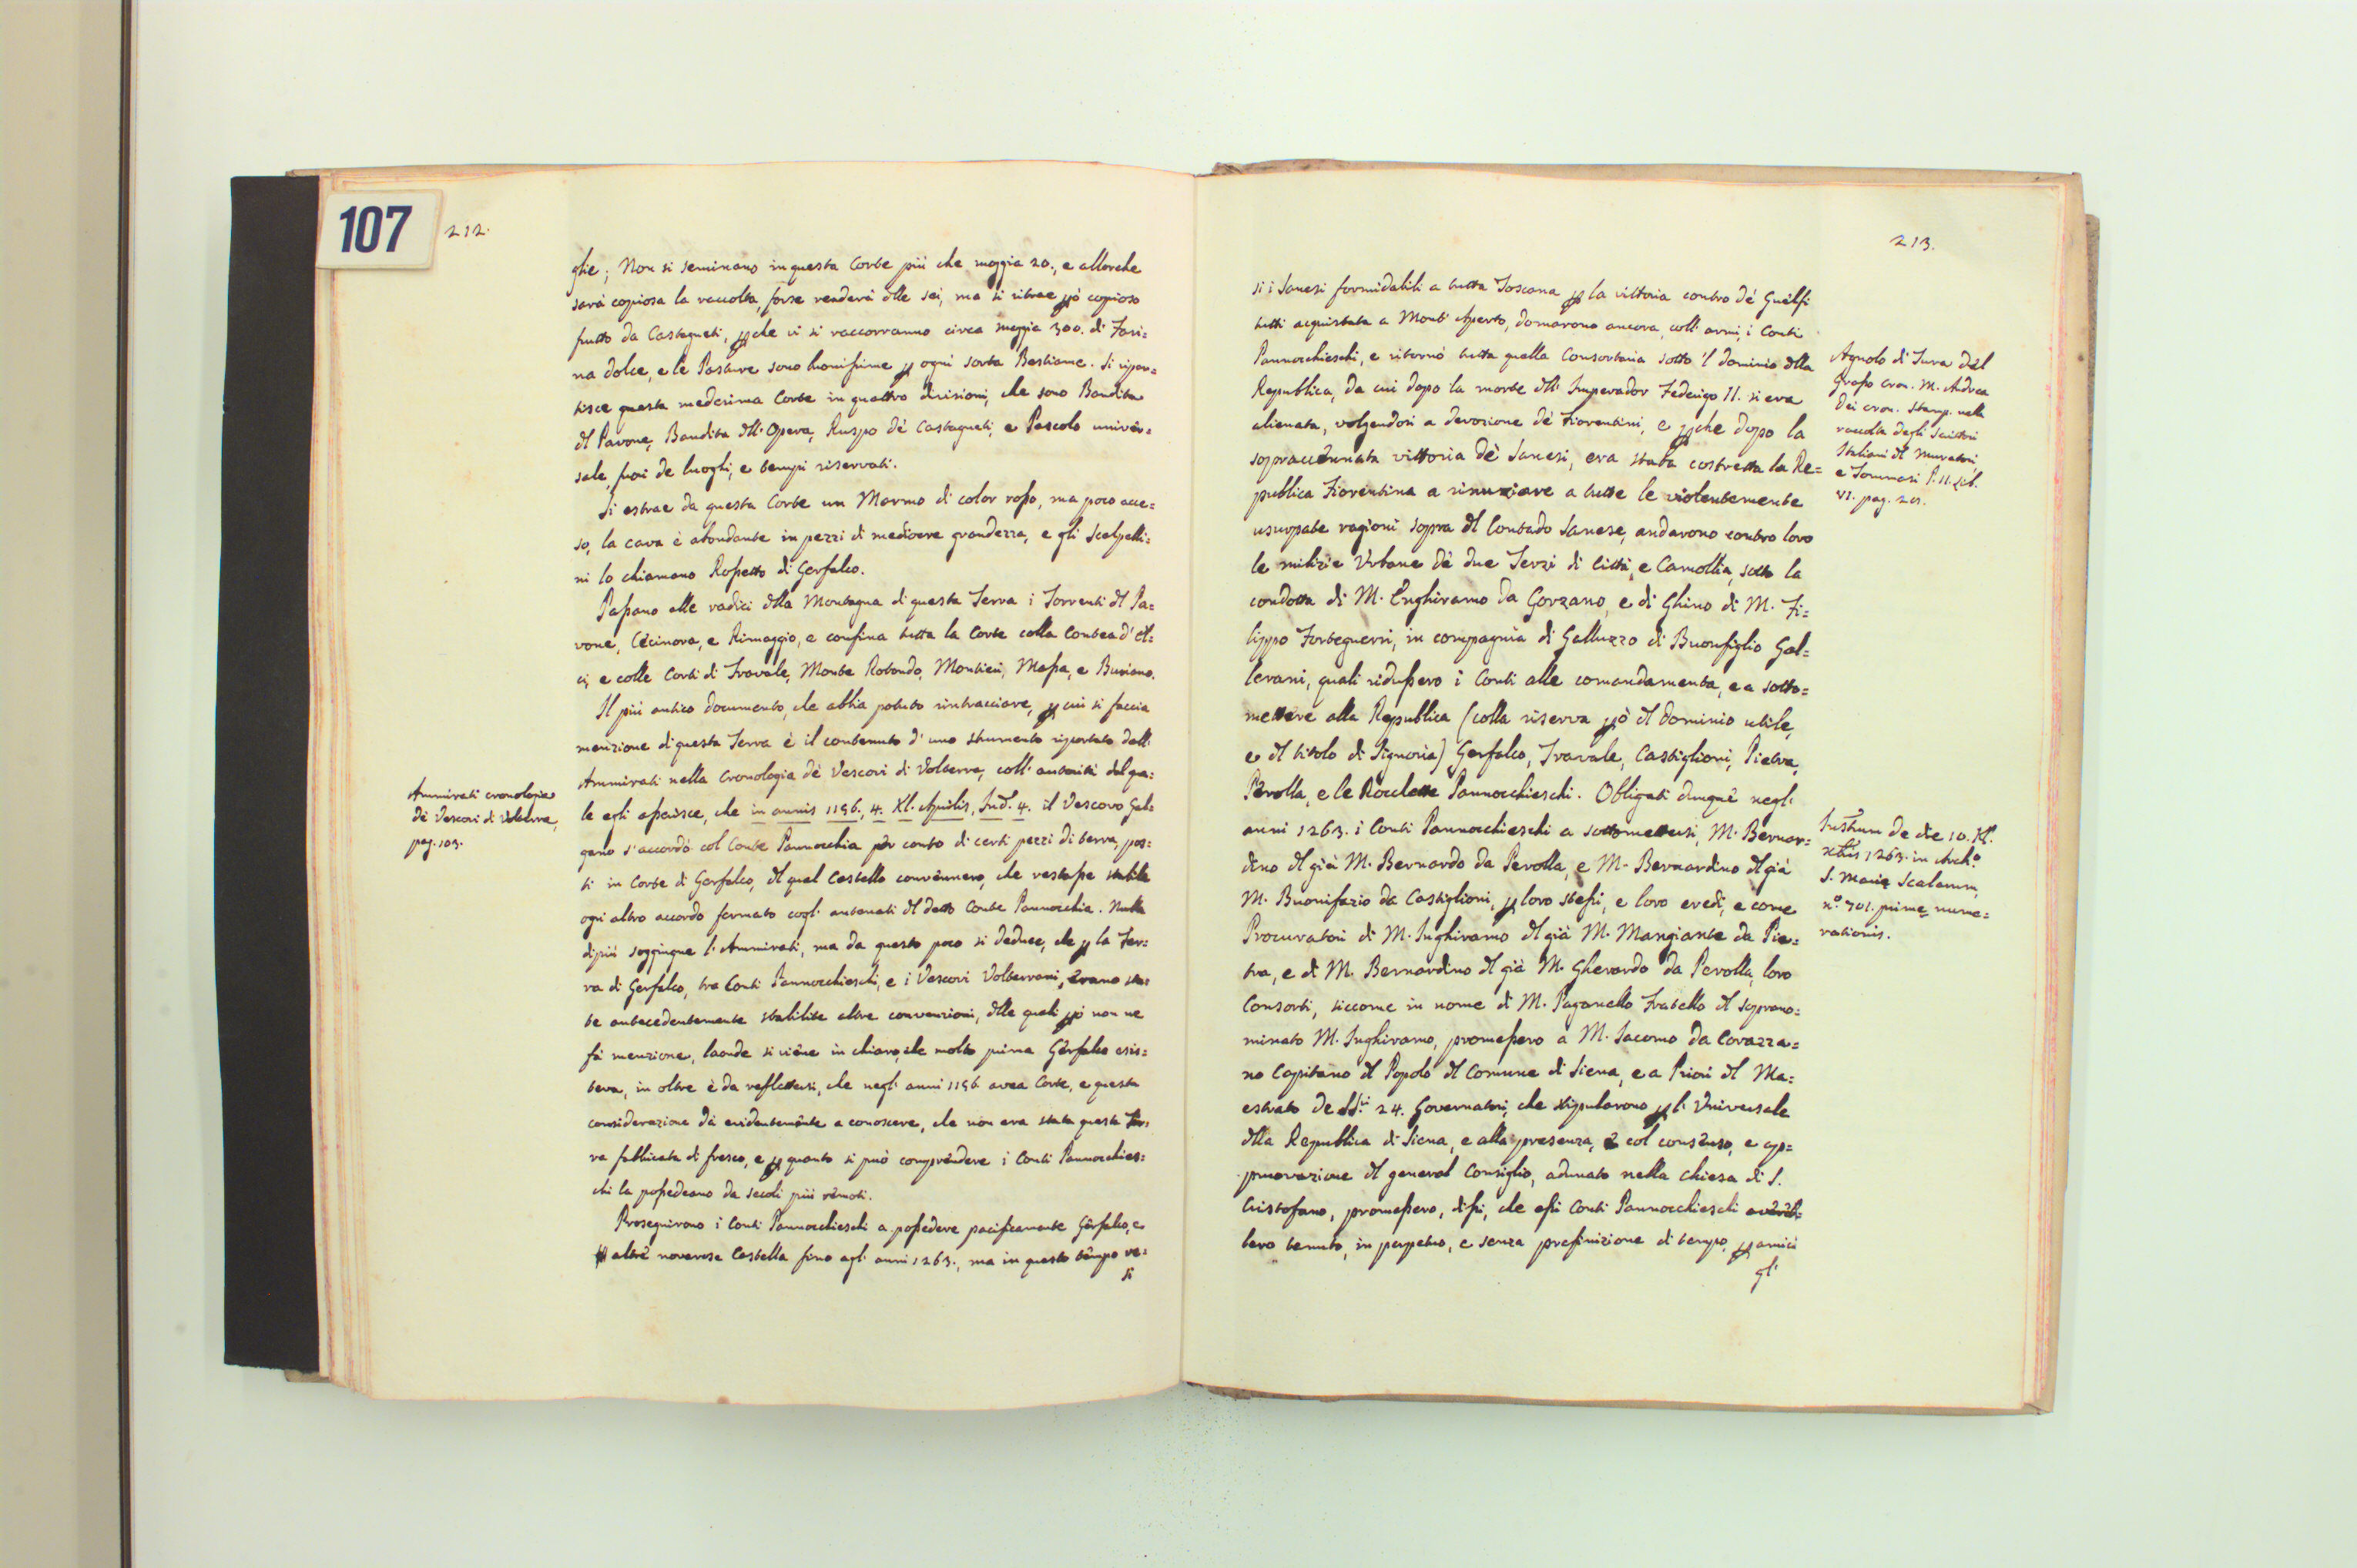 107
212.
glie; Non si seminano in questa Corte più che moggia 20., e allorche
sarà copiosa la raccolta, forse renderà dlle sei, ma si ritrae pò copioso
frutto da Castagneti, pche vi si raccorranno circa moggia 300. di Fari=
na dolce, e le Pasture sono buonissime p ogni sorta Bestiame. Si ripar=
tisce questa medesima Corte in quattro divisioni, che sono Bandita
dl Pavone, Bandita dll'Opera, Ruspo de' Castagneti, e Pascolo univer=
sale, fuori de luoghi, e tempi riservati.
Si estrae da questa Corte un Marmo di color rosso, ma poco acce=
so, la cava è abondante in pezzi di mediocre grandezza, e gli Scalpelli=
ni lo chiamano Rossetto di Gerfalco.
Passano alle radici dlla Montagna di questa Terra i Torrenti dl Pa=
vone, Cecinova, e Rimaggio, e confina tutta la Corte colla Contea d'El=
ci, e colle Corti di Travale, Monte Rotondo, Montieri, Massa, e Buriano.
Il più antico documento, che abbia potuto rintracciare, p cui si faccia
menzione di questa Terra è il contenuto d'uno strumento riportato dall'
Ammirati nella Cronologia dè Vescovi di Volterra, coll'autorità del qua=
le egli asserisce, che in annis 1196. 4. Kl. Aprilis, Ind. 4. il Vescovo Gal=
gano s'accordò col Conte Pannocchia per conto di certi pezzi di terra, pos=
ti in Corte di Gerfalco, dl qual Castello convennero, che restasse stabile
ogni altro accordo fermato cogl'antenati dl detto Conte Pannocchia. Nulla
dipiù soggiugne l'Ammirati, ma da questo poco si deduce, che p la Ter=
ra di Gerfalco, tra Conti Pannocchieschi, e i Vescovi Volterrani, erano sta=
te antecedentemente stabilite altre convenzioni, dlle quali pò non ne
fà menzione, laonde si viene in chiaro, che molto prima Gerfalco esis=
teva, in oltre è da reflettersi, che negl'anni 1196 avea Corte, e questa
considerazione dà evidentemente a conoscere, che non era stata questa Ter=
ra fabbricata di fresco, e p quanto si può comprendere i Conti Pannocchies=
chi la possedeano da secoli più remoti.
Proseguirono i Conti Pannocchieschi a possedere pacificamente Gerfalco, e
altre noverose Castella fino agl'anni 1263., ma in questo tempo re=
si
Ammirati cronologia
dè Vescovi di Volterra,
pag. 103.
213.
si i Sanesi formidabili a tutta Toscana p la vittoria contro dè Guelfi
tutti acquistata a Mont'Aperto, domarono ancora, coll'armi, i Conti
Pannocchieschi, e ritornò tutta quella Consorteria sotto 'l dominio dlla
Republica, da cui dopo la morte dll'Imperador Federigo II. si era
alienata, volgendosi a devozione dè Fiorentini, e pche dopo la
sopraccennata vittoria dè Sanesi, era stata costretta la Re=
publica Fiorentina a rinuziare a tutte le violentemente
usurpate ragioni sopra dl Contado Sanese, andarono contro loro
le milizie Urbane dè due Terzi di Città, e Camollia, sotto la
condotta di M. Enghiramo da Gorzano, e di Ghino di M. Fi=
lippo Forteguerri, in compagnia di Galluzzo di Buonfiglio Gal=
lerani, quali ridussero i Conti alle comandamenta, e a sotto=
mettere alla Republica (colla riserva pò dl dominio utile,
e dl titolo di Signoria) Gerfalco, Travale, Castiglioni, Pietra,
Perolla, e le Rocchette Pannocchieschi. Obligati dunque negl'
anni 1263. i Conti Pannocchieschi a sottomettersi, M. Bernar=
dino dl già M. Bernardo da Perolla, e M. Bernardino dl già
M. Buonifazio da Castiglioni, p loro stessi, e loro eredi, e come
Procuratori di M. Inghiramo dl già M. Mangiante da Pie=
tra, e di M. Bernardino dl già M. Gherardo da Perolla, loro
Consorti, siccome in nome di M. Paganello Fratello dl soprano=
minato M. Inghiramo, promessero a M. Iacomo da Covazza=
no Capitano dl Popolo dl Comune di Siena, e a Priori dl Ma=
estrato de SS.ri 24. Governatori, che stipularono p l'Universale
dlla Republica di Siena, e alla presenza, e col consenso, e ap=
pruovazione dl general Consiglio, adunato nella Chiesa di S.
Cristofano, promessero, dissi, che essi Conti Pannocchieschi avereb=
bero tenuto, in perpetuo, e senza prefinizione di tempo, p amici
gl'
Agnolo di Tura dal
Grasso cron. M. Andrea
Dei cron. stamp. nella
raccolta degli Scittori
Italiani dl Muratori,
e Tommasi P. II. Lib.
VI. pag. 21.
Instrum de die 10. Kl.
xbris 1263. in Arch.o
S. Marię Scalarum,
n.o 701. primę nume=
rationis.